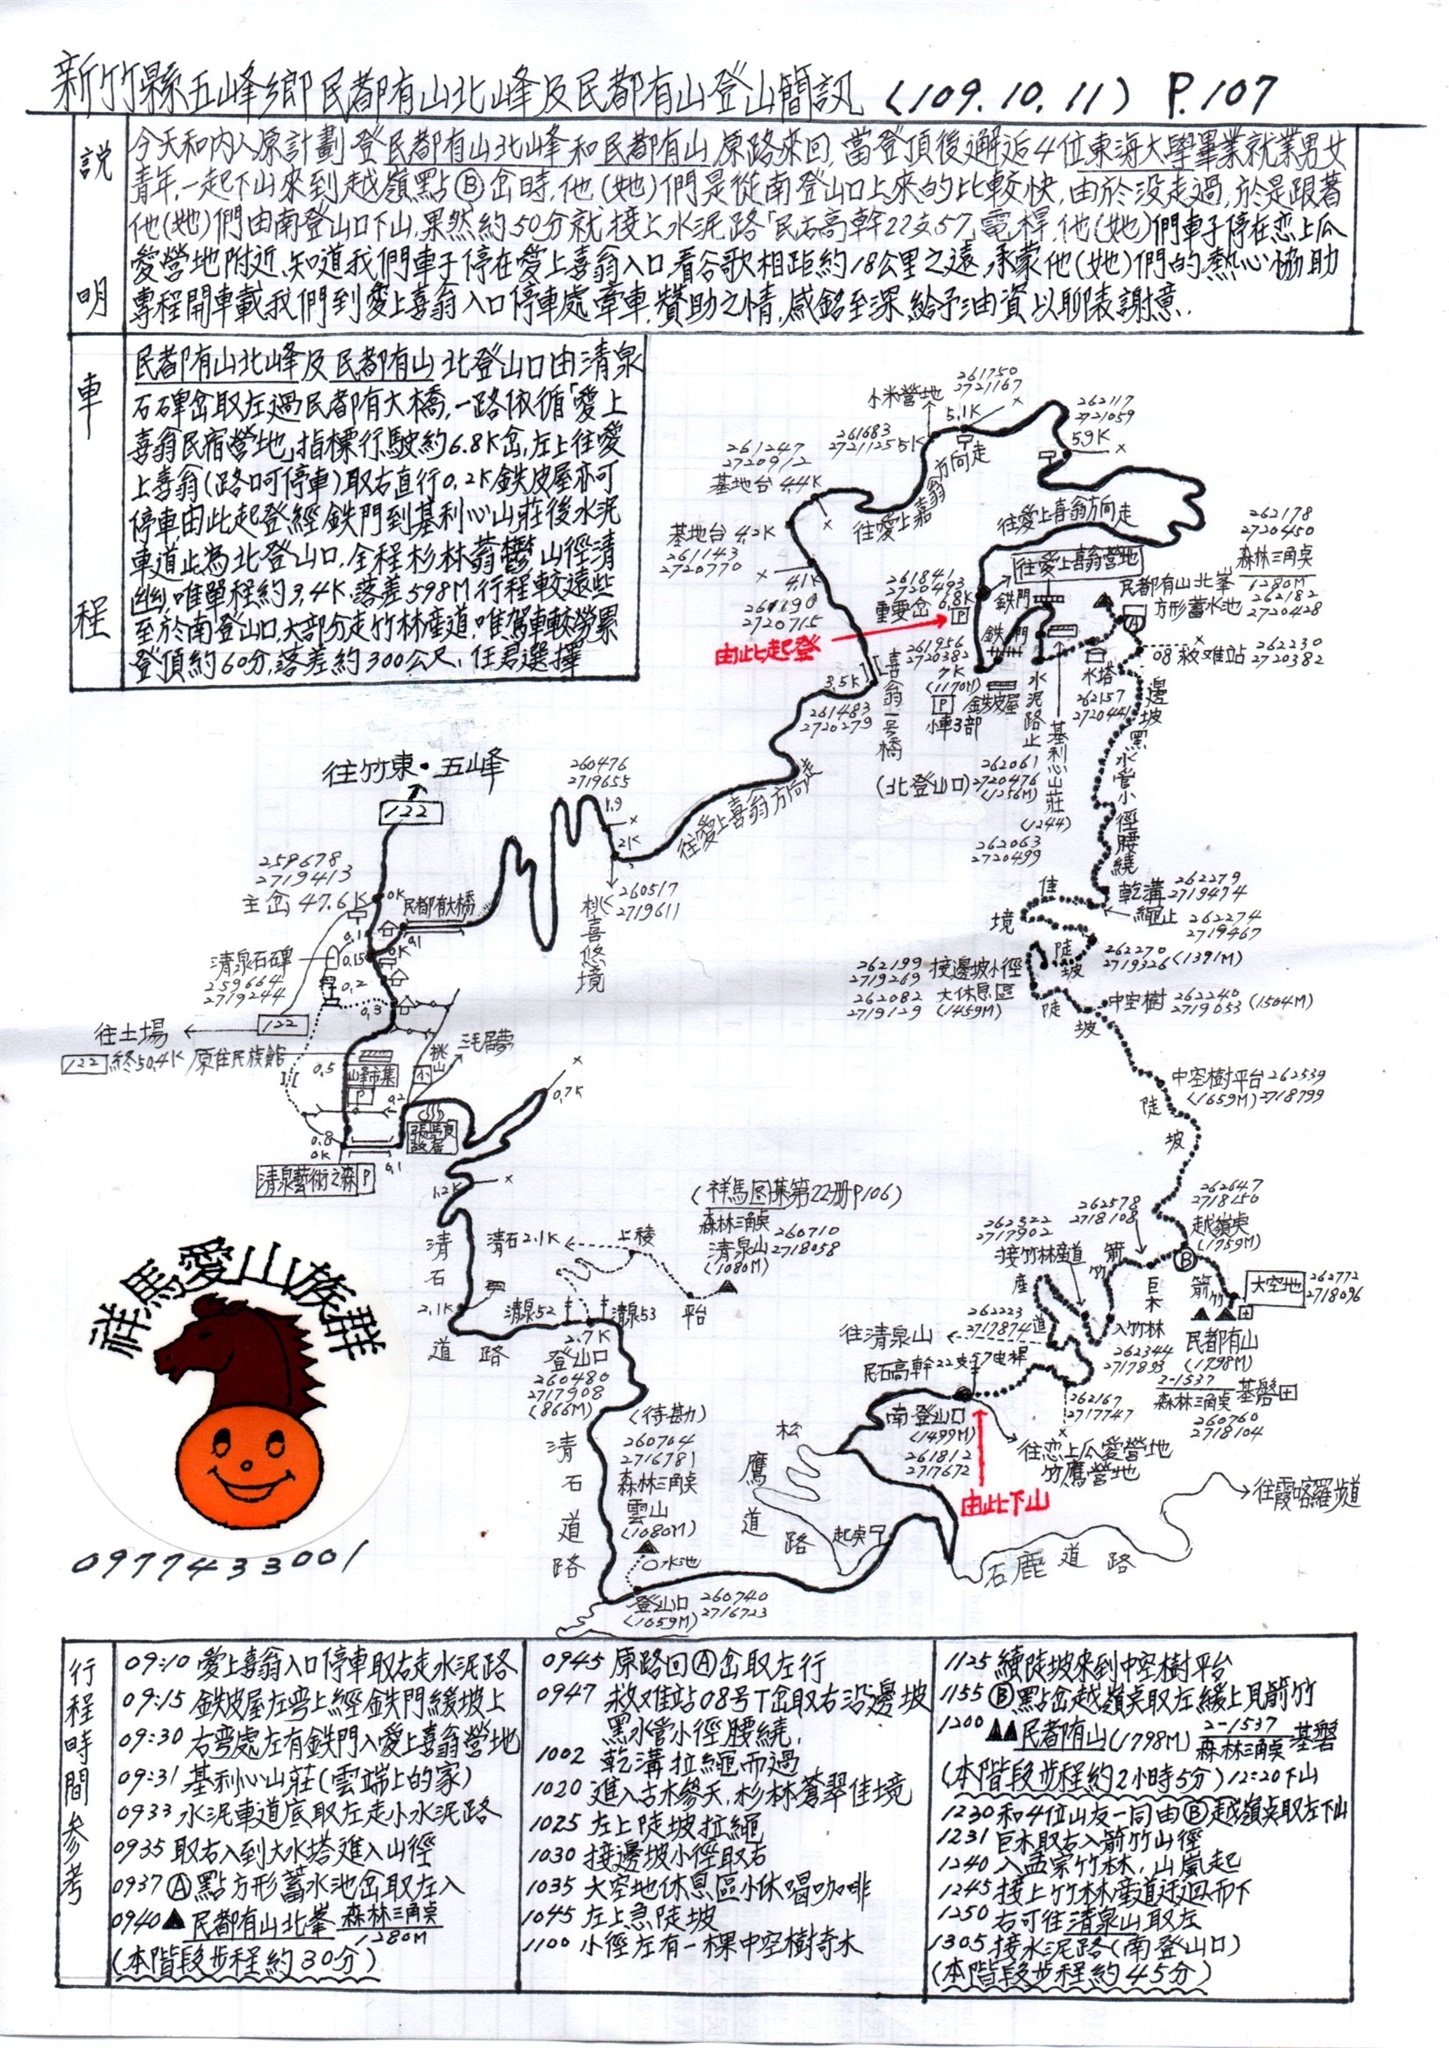 新竹縣五峰鄉民都有山北峰及民都有山登山簡訊 (109.10.11) P.107
說明
今天和內人原計劃登民都有山北峰和民都有山,原路來回,當登頂後邂逅4位東海大學畢業就業男女
青年,一起下山來到越嶺點Ⓑ岔時,他(她)們是從南登山口上來的比較快,由於沒走過,於是跟著
他(她)們由南登山口下山,果然約50分就接上水泥路「民石高幹22支57」電桿,他(她)們車子停在恋上瓜
愛營地附近,知道我們車子停在愛上喜翁入口,看谷歌相距約18公里之遠,承蒙他(她)們的熱心協助
專程開車載我們到愛上喜翁入口停車處牽車,贊助之情,感銘至深,給予油資以聊表謝意.
車程
民都有山北峰及民都有山北登山口由清泉
石碑岔取左過民都有大橋,一路依循「愛上
喜翁民宿營地」指標行駛約6.8K岔,左上往愛
上喜翁(路口可停車)取右直行0.2K鉄皮屋亦可
停車,由此起登經鉄門到基利心山莊後水泥
車道止為北登山口,全程杉林蓊鬱,山徑清
幽,唯單程約3.4K,落差598M行程較遠些
至於南登山口,大部分走竹林產道,唯駕車較勞累
登頂約60分,落差約300公尺,任君選擇
261750
2721167
小米營地
5.1K
262117
2721059
5.9K
261683
2721125
5K
261247
2720912
基地台 4.4K
往愛上喜翁方向走
往愛上喜翁方向走
基地台 4.2K
261143
2720770
4.1K
2720715
261841
2720493
重要岔 6.8K
P
由此起登
鉄門
往愛上喜翁營地
262178
2720450
森林三角点
1280M
民都有山北峯
方形蓄水池
262182
2720428
Ⓐ
08救难站
262230
2720382
261956
2720382
7K
(1170M)
P
小車3部
鉄皮屋
鉄門
水泥路止
基利心山莊
(1244)
水塔
262157
2720441
3.5K
261483
2720279
喜翁一号橋
(北登山口)
262061
2720476
(1256M)
262063
2720499
邊坡黑水管小徑腰繞
往竹東·五峰
122
260476
2719655
1.9
2K
往愛上喜翁方向走
260517
2719611
桃喜悠境
259678
2719413
主岔 47.6K
0K
民都有大橋
0.1
0.1
0K
0.15
清泉石碑
259664
2719244
0.2
0.3
往土場
122
122 終50.4K
原住民族館
0.5
山峰市集
P
桃山
三毛居夢
0.2
張學良故居
0.8
0K
0.1
清泉藝術之森 P
0.7K
1.2K
佳境
乾溝
262279
2719474
繩止
262274
2719467
陡坡
262270
2719326 (1391M)
262199
2719269
接邊坡小徑
262082
2719129
大休息區
(1459M)
陡坡
中空樹
262240
2719053 (1504M)
中空樹平台
262539
(1659M) 2718799
陡坡
(祥馬図集第22册P.106)
森林三角点
清泉山
(1080M)
260710
2718058
清石2.1K
上稜
平台
清石道路
2.1K
清泉52
清泉53
2.7K
登山口
260480
2717908
(866M)
262647
2718150
越嶺点
(1759M)
Ⓑ
262578
2718108
箭竹
大空地
262772
2718096
箭竹
262322
2717902
接竹林産道
巨木
産道
入竹林
262344
2717893
262223
2717874
民都有山
(1798M)
2-1537
森林三角点 基磐
260760
2718104
往清泉山
民石高幹22支57电桿
262167
2717747
南登山口
(1499M)
261812
2717672
由此下山
往恋上瓜愛營地
竹鷹營地
往霞喀羅步道
石鹿道路
松鷹道路
起点
清石道路
(待勘)
260704
2716781
森林三角点
雲山
(1080M)
水池
登山口
(1059M)
260740
2716723
祥馬愛山族群
0977433001
行程時間參考
09:10 愛上喜翁入口停車取右走水泥路
09:15 鉄皮屋左弯上經鉄門緩坡上
09:30 右弯處左有鉄門入愛上喜翁營地
09:31 基利心山莊(雲端上的家)
0933 水泥車道底取左走小水泥路
0935 取右入到大水塔進入山徑
0937 Ⓐ點方形蓄水池岔取左入
0940 ▲民都有山北峯 森林三角点 1280M
(本階段步程約30分)
0945 原路回Ⓐ岔取左行
0947 救难站08号T岔取右沿邊坡
黑水管小徑腰繞,
1002 乾溝拉繩而過
1020 進入古木參天,杉林蒼翠佳境
1025 左上陡坡拉繩
1030 接邊坡小徑取右
1035 大空地休息區小休喝咖啡
1045 左上急陡坡
1100 小徑左有一棵中空樹奇木
1125 續陡坡來到中空樹平台
1155 Ⓑ點岔越嶺点取左緩上見箭竹
1200 ▲▲民都有山(1798M) 2-1537 森林三角点 基磐
(本階段步程約2小時5分) 12:20下山
1230 和4位山友一同由Ⓑ越嶺点取左下山
1231 巨木取右入箭竹山徑
1240 入孟宗竹林,山嵐起
1245 接上竹林産道迂迴而下
1250 右可往清泉山取左
1305 接水泥路(南登山口)
(本階段步程約45分)